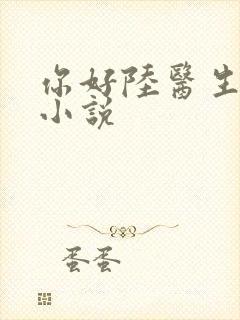 你好陸醫生
小說
蛋蛋